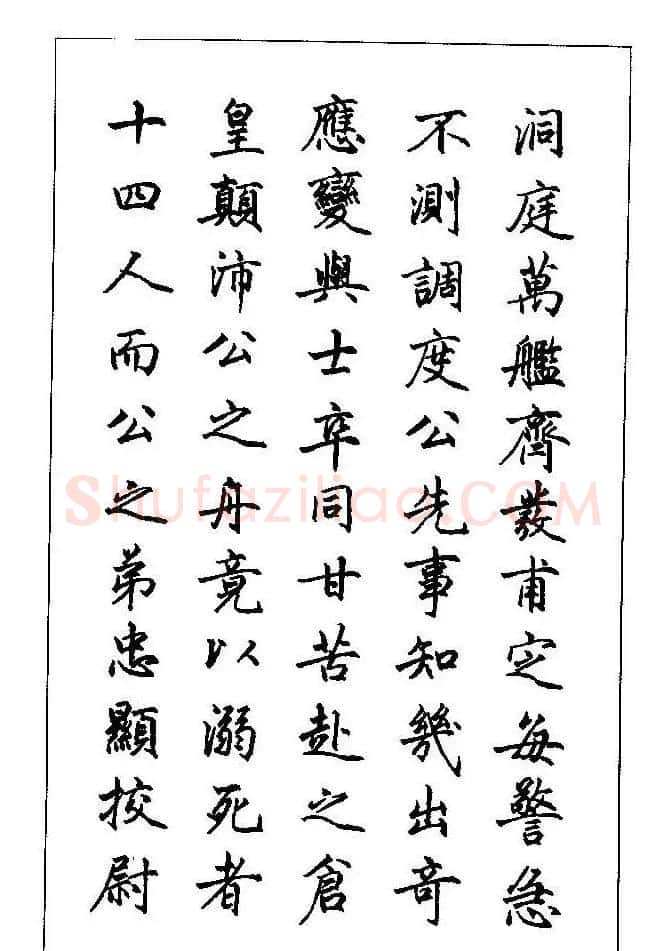 洞庭萬艦齊發甫定每警急
不測調度公先事知幾出奇
應變與士卒同甘苦赴之倉
皇顛沛公之舟竟以溺死者
十四人而公之弟忠顯挍尉
Shufaziliao.COM